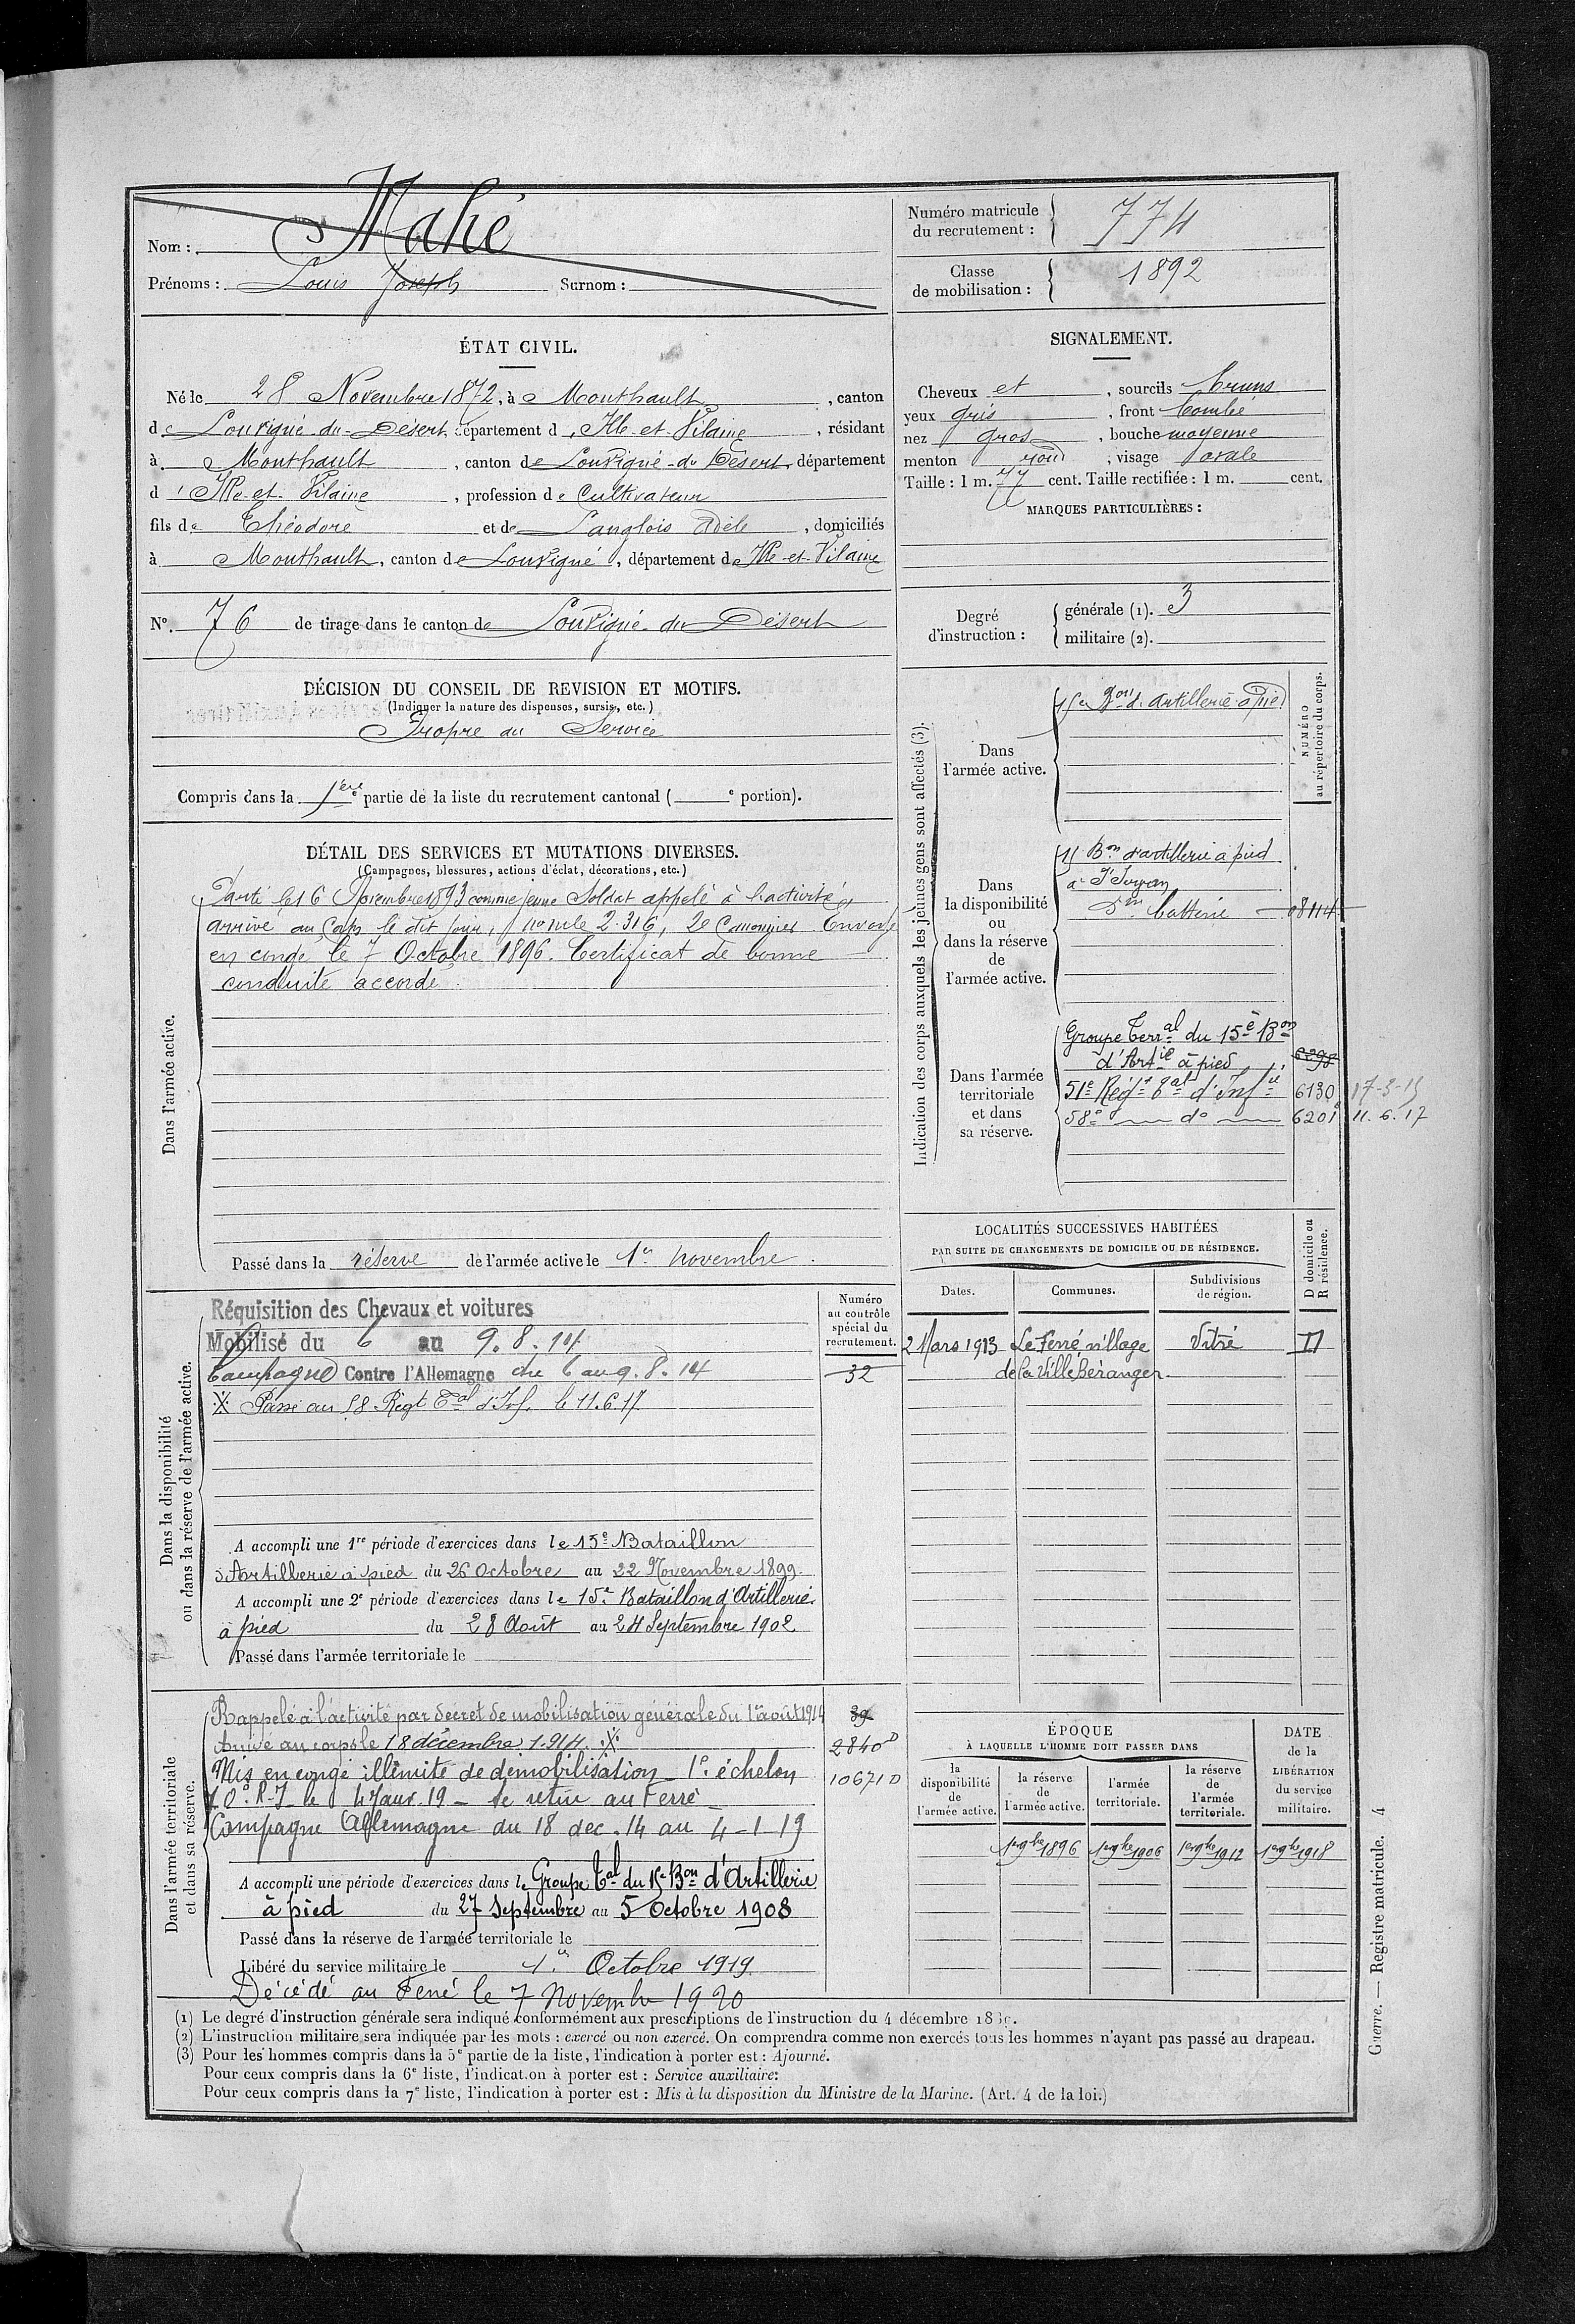 Nom : Mahé
Prénoms : Louis Joseph Surnom :
Numéro matricule du recrutement : 774
Classe de mobilisation : 1892
ÉTAT CIVIL.
Né le 28 Novembre 1872, à Monthault, canton
de Louvigné-du-Désert, département d'Ille-et-Vilaine, résidant
à Monthault, canton de Louvigné-du Désert, département
d'Ille-et-Vilaine, profession de Cultivateur
fils de Théodore et de Langlois Adèle, domiciliés
à Monthault, canton de Louvigné, département de Ille-et-Vilaine
N° 76 de tirage dans le canton de Louvigné-du Désert
SIGNALEMENT.
Cheveux et, sourcils bruns
yeux gris, front bombé
nez gros, bouche moyenne
menton rond, visage ovale
Taille : 1 m. 77 cent. Taille rectifiée : 1 m. cent.
MARQUES PARTICULIÈRES :
Degré d'instruction : générale (1). 3
militaire (2).
DÉCISION DU CONSEIL DE REVISION ET MOTIFS.
(Indiquer la nature des dispenses, sursis, etc.)
Propre au Service
Compris dans la 1ère partie de la liste du recrutement cantonal ( e portion).
DÉTAIL DES SERVICES ET MUTATIONS DIVERSES.
(Campagnes, blessures, actions d'éclat, décorations, etc.)
Dans l'armée active.
Parti le 16 Novembre 1893 comme jeune Soldat appelé à l'activité,
arrivé au Corps le dit jour, nomle 2.316, 2e Canonnier Envoyé
en congé le 7 Octobre 1896. Certificat de bonne
conduite accordé
Passé dans la réserve de l'armée active le 1er novembre.
Indication des corps auxquels les jeunes gens sont affectés (3).
NUMÉRO au répertoire du corps.
Dans l'armée active.
15e Bon d'artillerie à pied
Dans la disponibilité ou dans la réserve de l'armée active.
15 Bon d'artillerie à pied
à St Servan
5me batterie 08114
Dans l'armée territoriale et dans sa réserve.
Groupe Terral du 15e Bon
d'Artie à pied 6298
51e Régt tal d'Infie 6130 17-3-15
58e do 6201 11.6.17
LOCALITÉS SUCCESSIVES HABITÉES
PAR SUITE DE CHANGEMENTS DE DOMICILE OU DE RÉSIDENCE.
Dates. Communes. Subdivisions de région. D domicile ou R résidence.
2 Mars 1913 Le Ferré, village Vitré D
de la Ville Béranger
Dans la disponibilité ou dans la réserve de l'armée active.
Numéro au contrôle spécial du recrutement.
32
Réquisition des Chevaux et voitures
Mobilisé du 6 au 9.8.14
Campagne Contre l'Allemagne du 6 au 9.8.14
Passé au 58 Régt Tal d'Inf. le 11.6.17
A accompli une 1re période d'exercices dans le 15e Bataillon
d'Artillerie à pied du 26 Octobre au 22 Novembre 1899.
A accompli une 2e période d'exercices dans le 15e Bataillon d'Artillerie
à pied du 28 Août au 24 Septembre 1902
Passé dans l'armée territoriale le
Dans l'armée territoriale et dans sa réserve.
Rappelé à l'activité par décret de mobilisation générale du 1er août 1914 39
Arrivé au corps le 18 décembre 1914. 2840
Mis en congé illimité de démobilisation 1e échelon 10671 D
70e R.I. le 4 Janv. 19 - se retire au Ferré
Campagne Allemagne du 18 dec. 14 au 4-1-19
A accompli une période d'exercices dans le Groupe Tal du 15e Bon d'Artillerie
à pied du 27 Septembre au 5 Octobre 1908
Passé dans la réserve de l'armée territoriale le
Libéré du service militaire le 1er Octobre 1919.
Décédé au Ferré le 7 Novembre 1920
ÉPOQUE À LAQUELLE L'HOMME DOIT PASSER DANS
la disponibilité de l'armée active. la réserve de l'armée active. l'armée territoriale. la réserve de l'armée territoriale. DATE de la LIBÉRATION du service militaire.
1er 9bre 1896 1er 9bre 1906 1er 9bre 1912 1er 9bre 1918
(1) Le degré d'instruction générale sera indiqué conformément aux prescriptions de l'instruction du 4 décembre
(2) L'instruction militaire sera indiquée par les mots : exercé ou non exercé. On comprendra comme non exercés tous les hommes n'ayant pas passé au drapeau.
(3) Pour les hommes compris dans la 5e partie de la liste, l'indication à porter est : Ajourné.
Pour ceux compris dans la 6e liste, l'indication à porter est : Service auxiliaire.
Pour ceux compris dans la 7e liste, l'indication à porter est : Mis à la disposition du Ministre de la Marine. (Art. 4 de la loi.)
Guerre. — Registre matricule. 4